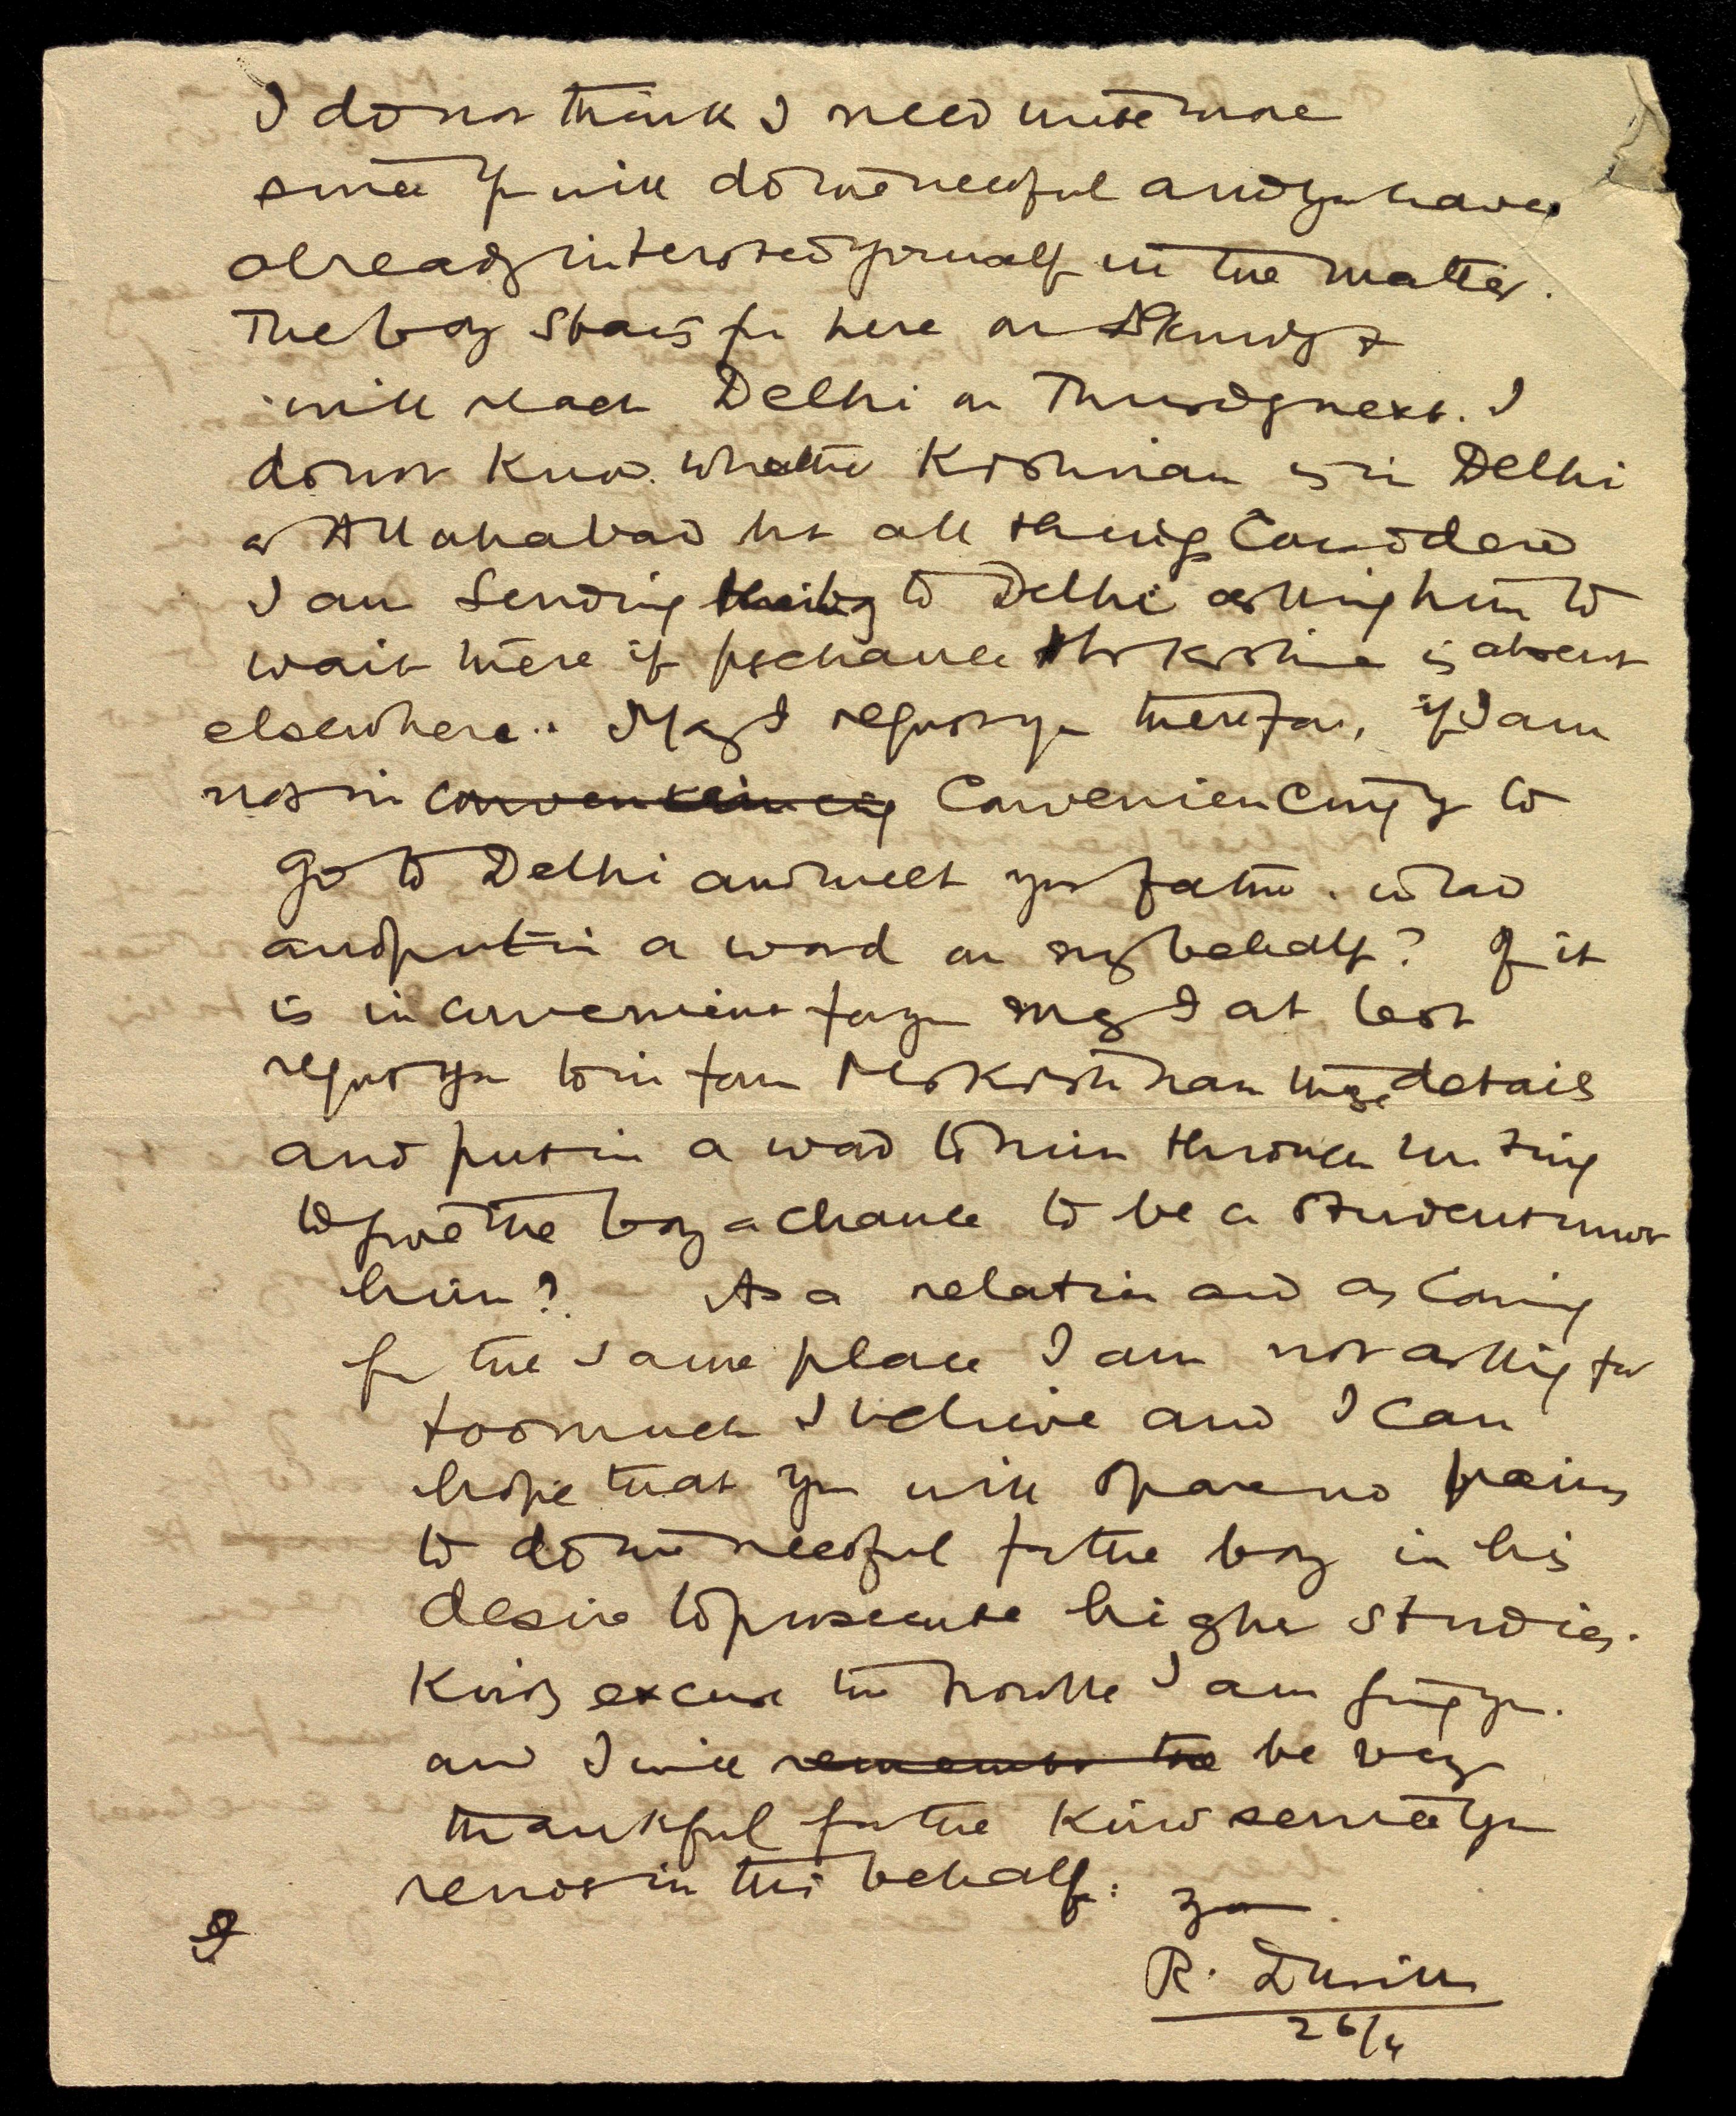 I do not think I need write more
since you will do the needful and you have
already interested yourself in the matter.
The boy starts from here on &
will reach Delhi on Thursday next. I
do not know whether Krishnan is in Delhi
or Allahabad but all things considered
I am sending to Delhi asking him to
wait there if perchance Mr Krishnan is absent
elsewhere. May I request you therefore, if I am
not in conveniencing you to
go to Delhi and meet your father in law
and put in a word on my behalf? If it
is inconvenient for you may I at best
request you to inform Mr Krishnan these details
and put in a word to him through writing
to give the boy a chance to be a student under
him? As a relation and as coming
from the same place I am not asking for
too much I believe and I can
hope that you will spare no pains
to do the needful for the boy in his
desire to prosecute higher studies.
Kindly excuse the trouble I am giving you.
and I will remember the be very
thankful for the kind service you
render in this behalf.
Yours
R.
26/4